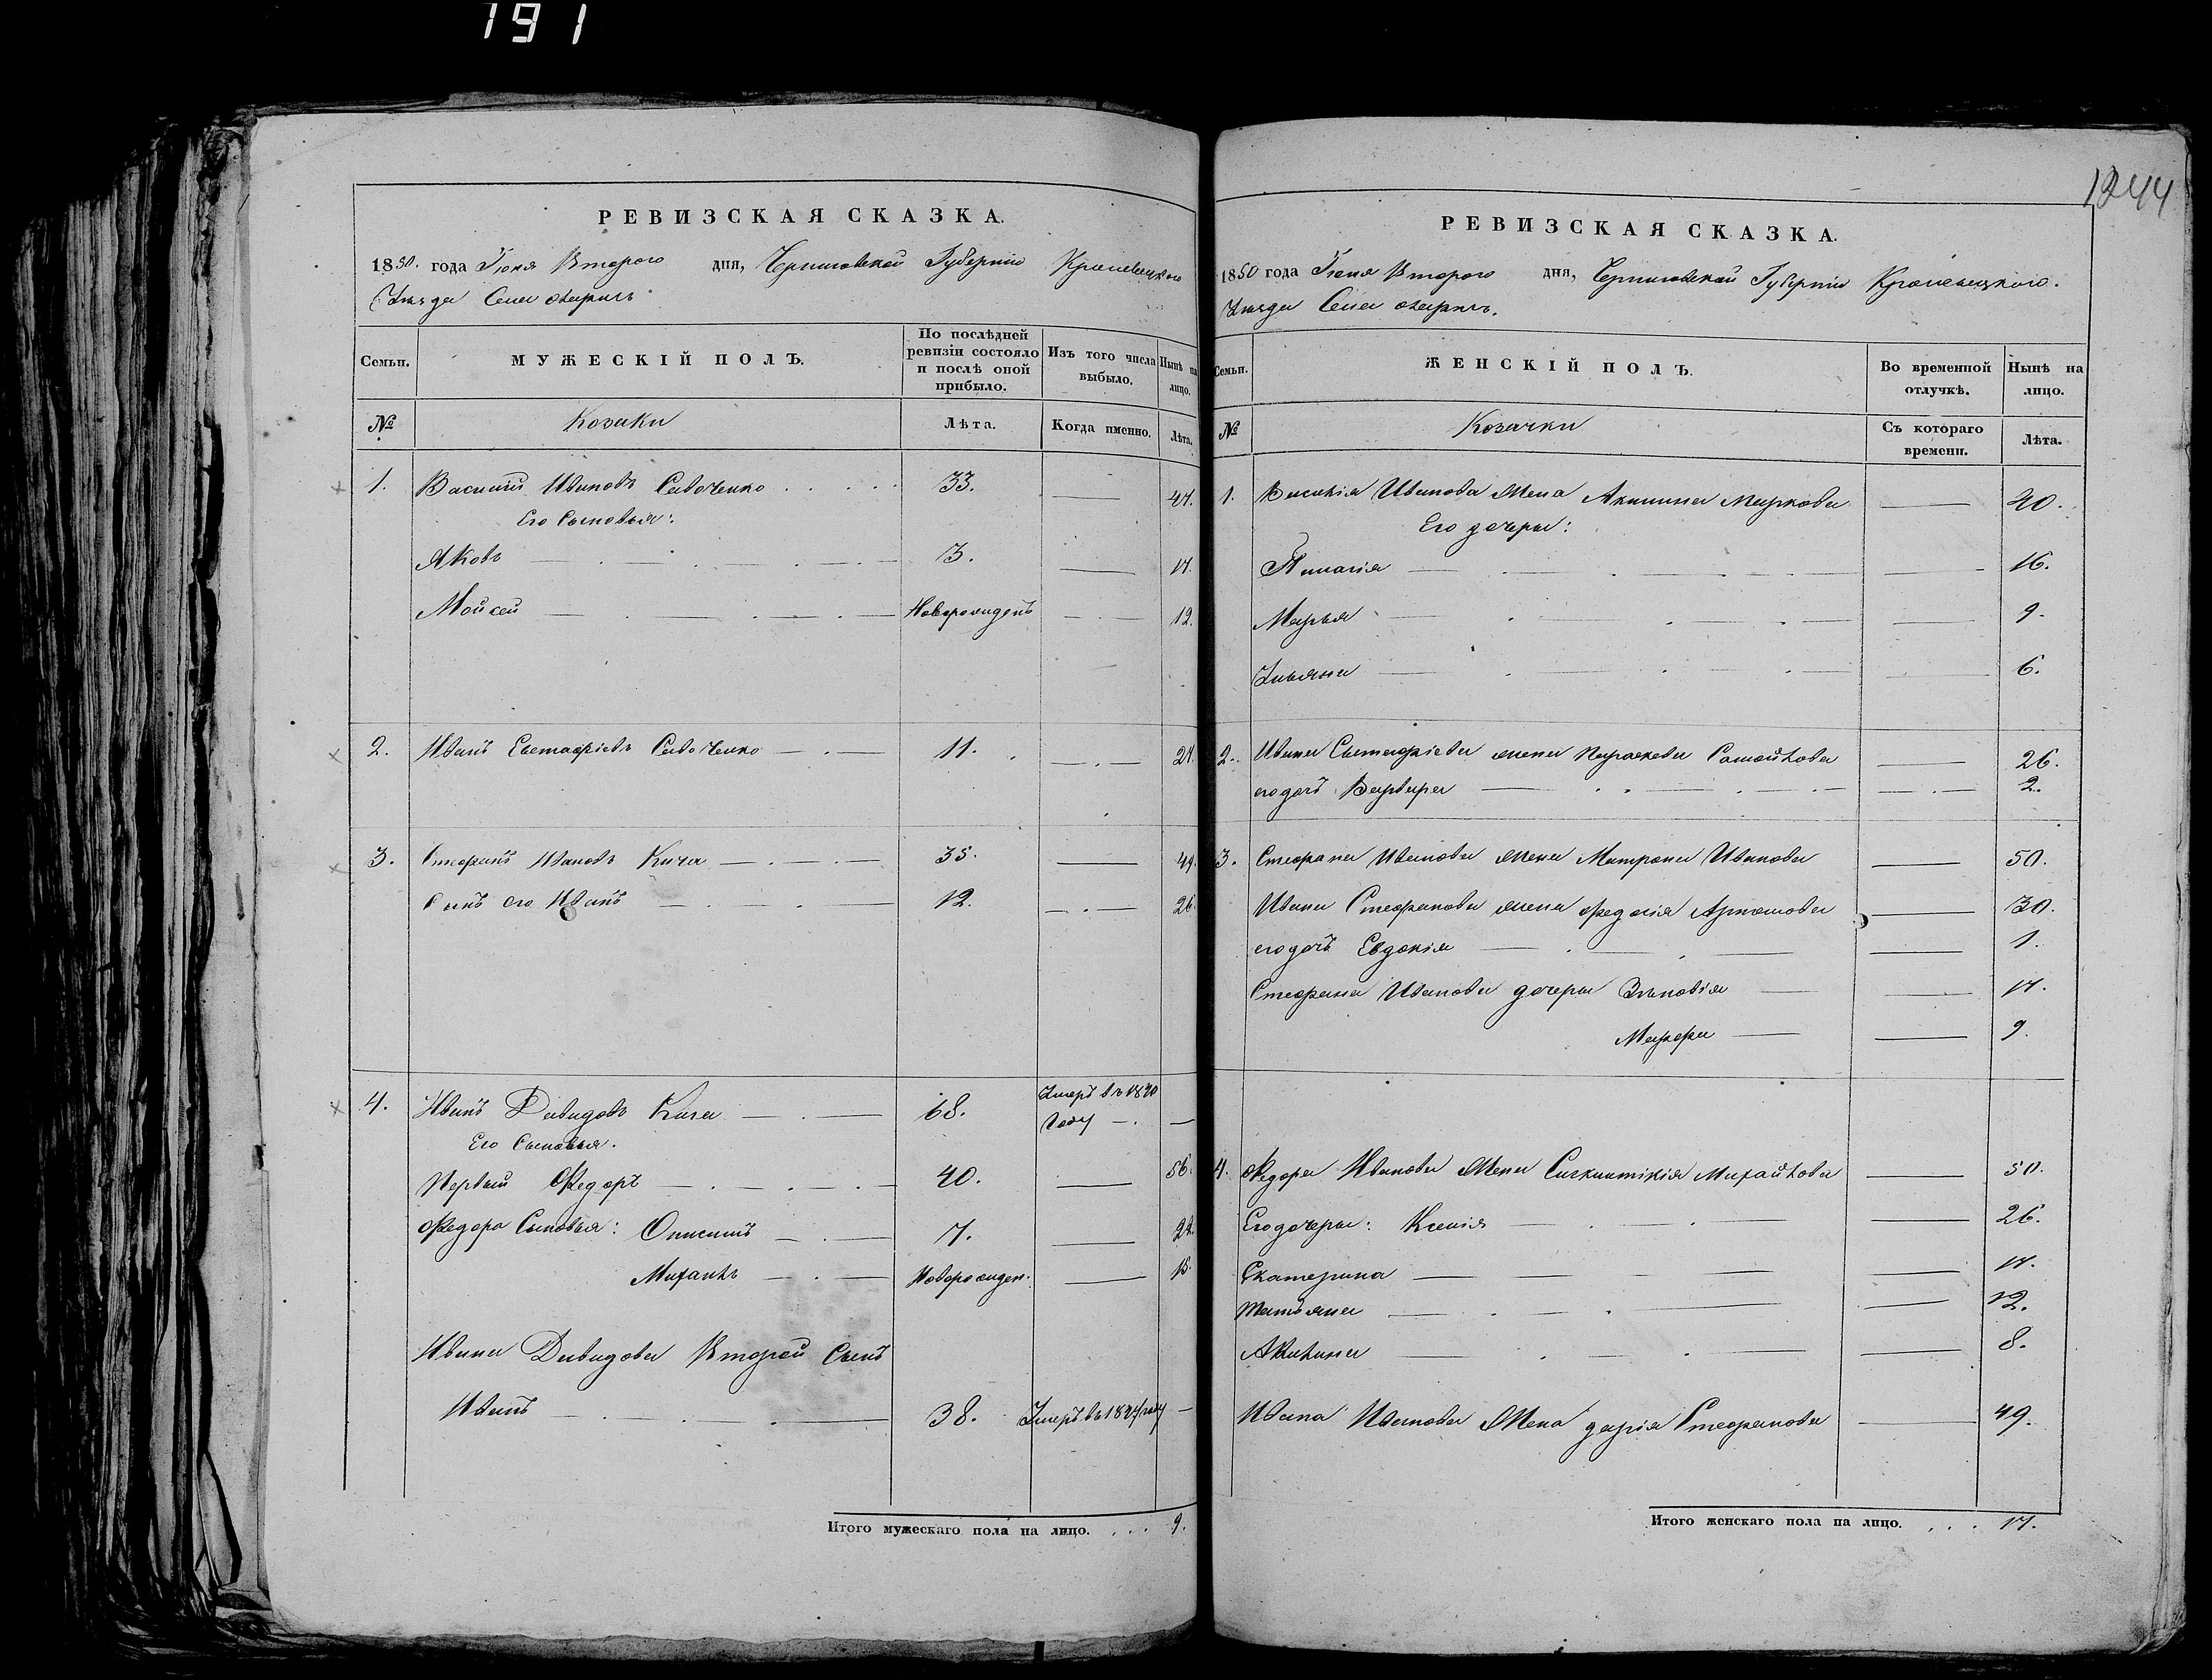 191
1244
РЕВИЗСКАЯ СКАЗКА.
1850. года Іюня Второго дня, Черниговской Губерніи Кролевецкого
Уезда Села
Семьи. МУЖЕСКІЙ ПОЛЪ. По послѣдней ревизіи состояло и послѣ оной прибыло. Изъ того числа выбыло. Нынѣ на лицо.
№ Козаки Лѣта. Когда именно. Лѣта.
1. Василий Ивановъ Савоченко 33. 47.
Его Сыновья:
Яковъ 3. 17.
Мойсей Новорожденъ 12.
2. Иванъ Евстафіевъ Савоченко 11. 27.
3. Стефанъ Ивановъ Кича 35. 49.
Сынъ его Иванъ 12. 26.
4. Иванъ Давидовъ Кича 68. Умеръ въ 1840 Году
Его Сыновья.
Первый Федоръ 40. 56.
Федора Сыновья: Онисимъ 7. 22.
Михаилъ Новорожден. 15.
Ивана Давидова Второй Сынъ
Иванъ 38. Умеръ въ 1847 году
Итого мужескаго пола на лицо. . . . 9.
РЕВИЗСКАЯ СКАЗКА.
1850 года Іюня Второго дня, Черниговской Губерніи Кролевецкого.
Уезда Села
Семьи. ЖЕНСКІЙ ПОЛЪ. Во временной отлучкѣ. Нынѣ на лицо.
№ Козачки Съ котораго времени. Лѣта.
1. Василія Иванова Жена Акилина Маркова 40.
Его дочеры:
Пелагія 16.
Марья 9.
Ульяна 6.
2. Ивана Евстафіева жена Параскева Самойлова 26.
его дочъ Варвара 2.
3. Стефана Иванова Жена Матрона Иванова 50.
Ивана Стефанова жена Федосія Артемова 30.
его дочъ Евдокія 1.
Стефана Иванова дочеры Зѣновія 17.
Марфа 9.
4. Федора Иванова Жена Михайлова 50.
Его дочеры: Ксенія 26.
Екатерина 17.
Татьяна 12.
Акилина 8.
Ивана Иванова Жена дарія Стефанова 49.
Итого женскаго пола на лицо. . . . 17.